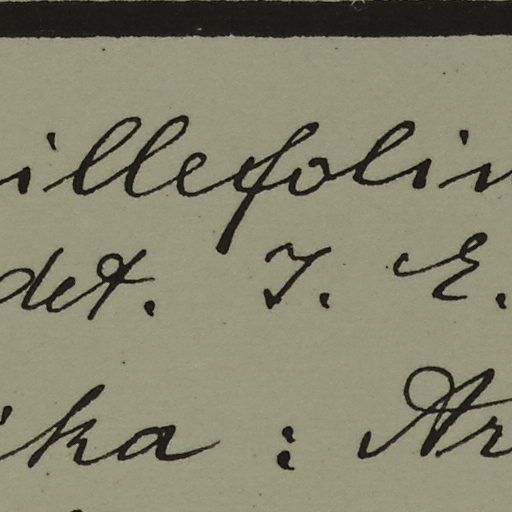 illefoliu
det. J. E.
ika : Ar